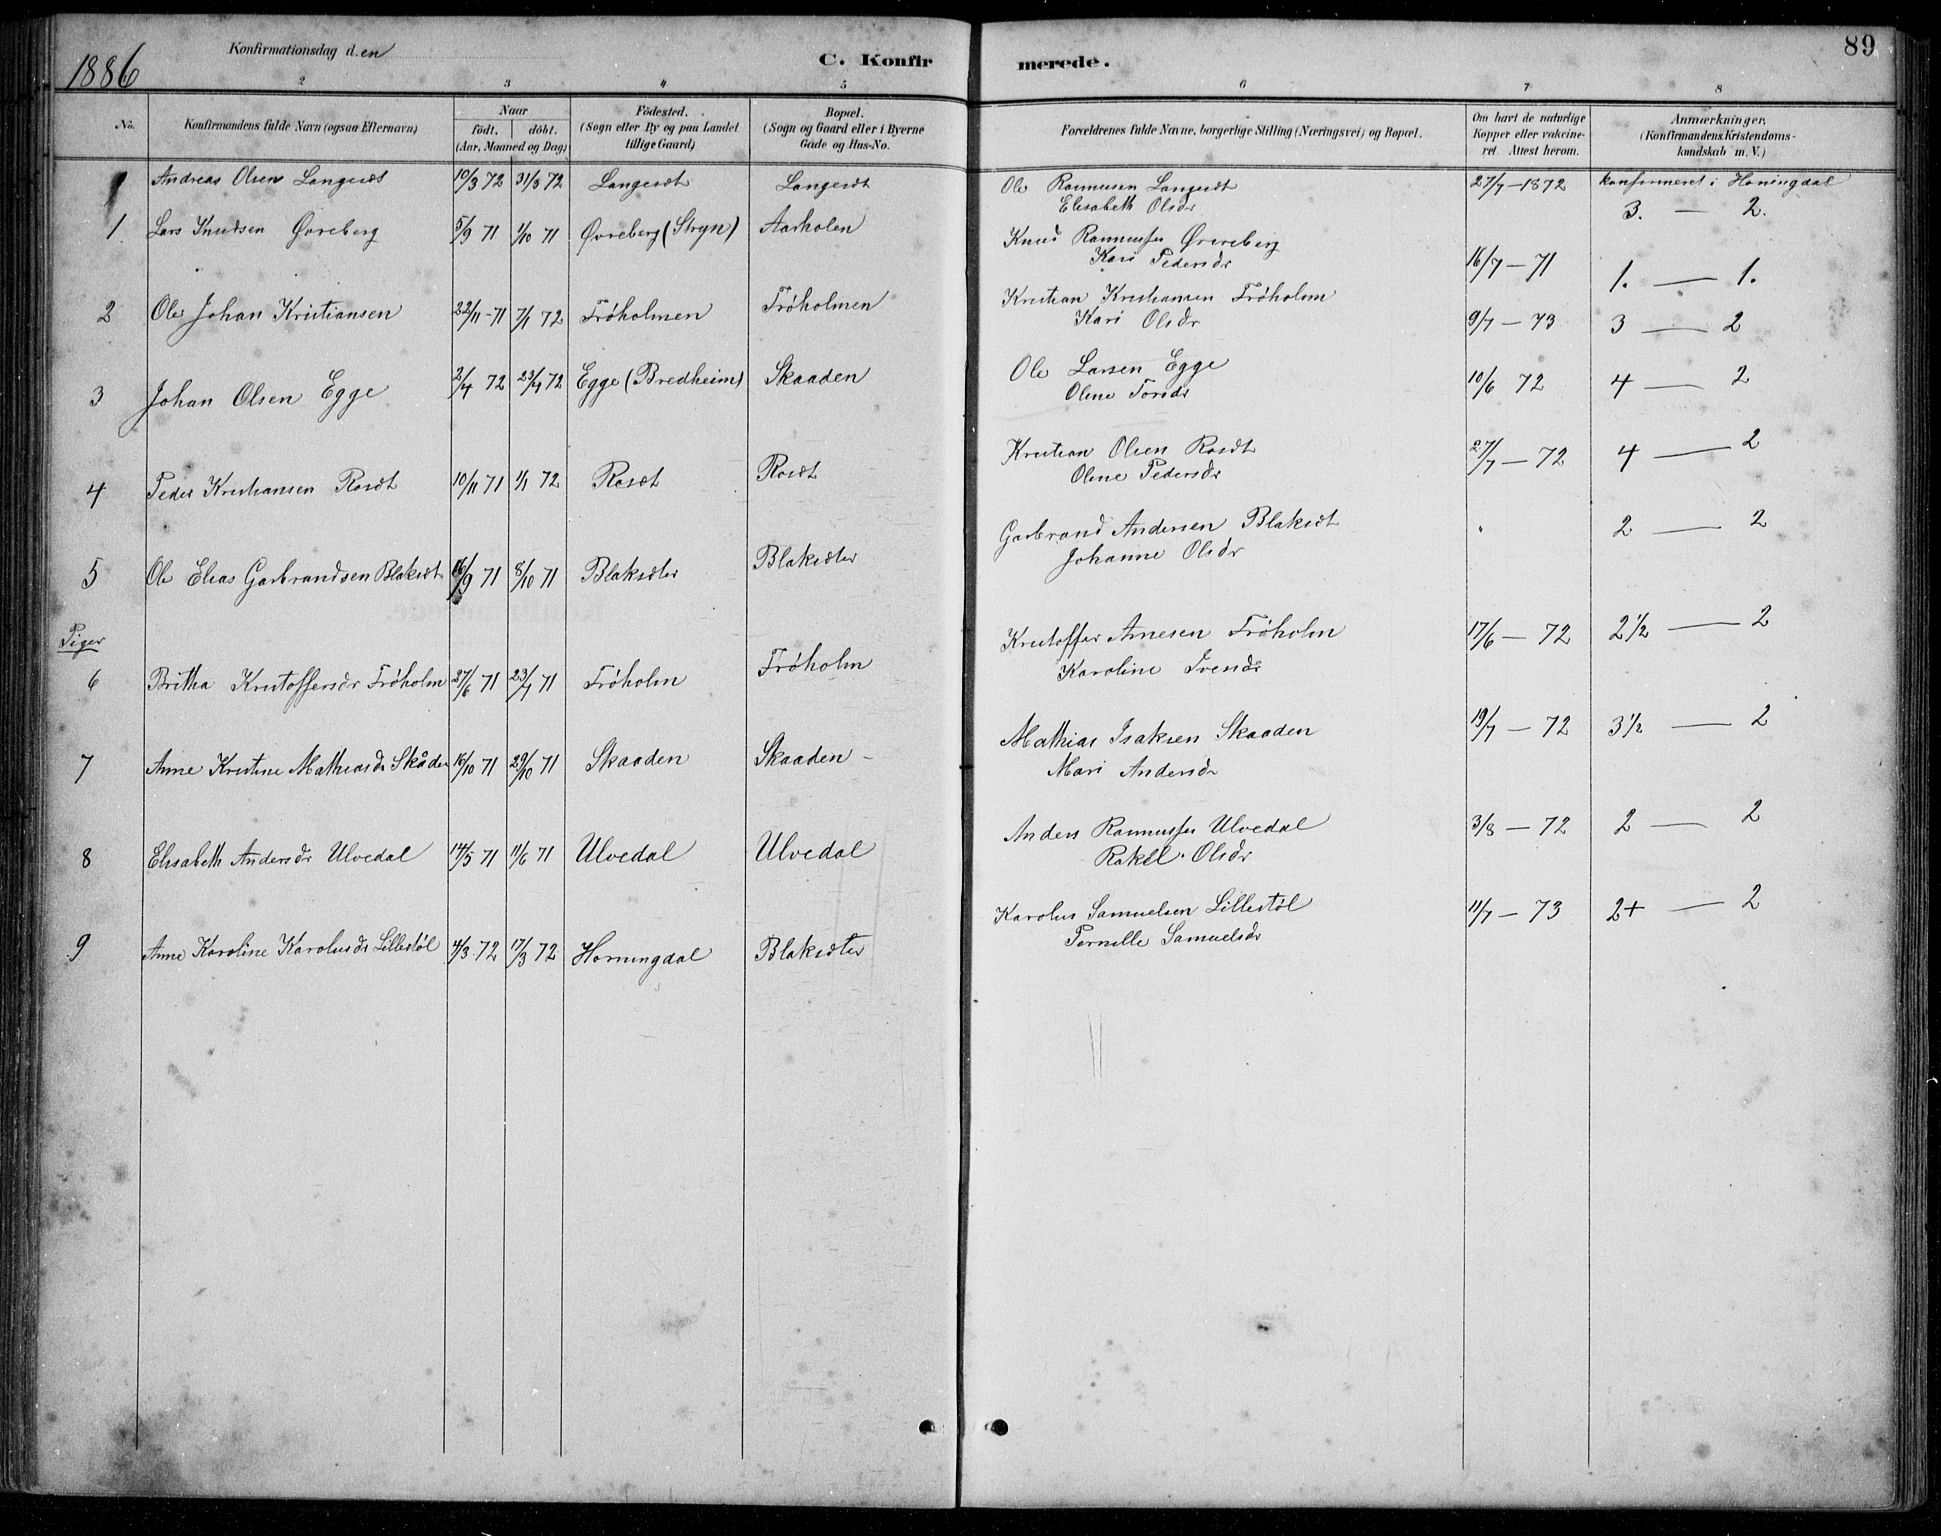 1886 Konfirmationsdag d.en
C. Konfirmerede.
89
2 3 4 5 6 7 8
No. Konfirmandens fulde Navn (ogsaa Efternavn)
Naar födt. döbt. (Aar, Maaned og Dag)
Födested. (Sogn eller By og paa Landet tillige Gaard)
Bopæl. (Sogn og Gaard eller i Byerne Gade og Hus-No.
Forældrenes fulde Navne, borgerlige Stilling (Næringsvei) og Bopæl.
Om havt de naturlige Kopper eller vakcineret. Attest herom.
Anmærkninger, (Konfirmandens Kristendomskundskab m. V.)
Andreas Olsen Langesæt 10/3 72 31/3 72 Langesæt Langesæt Ole Rasmusen Langesæt 27/7 - 1872 konfirmeret i Honingdal
Elisabeth Olsdr 3. — 2.
1 Lars Knudsen Øvreberg 5/9 71 1/10 71 Øvreberg (Stryn) Aarholen Knud Rasmussen Øvreberg
Kari Pedersdr 16/7 — 71 1. — 1.
2 Ole Johan Kristiansen 22/11 - 71 7/1 72 Frøholmen Frøholmen Kristian Kristiansen Frøholm
Kari Olsdr 9/7 — 73 3 — 2
3 Johan Olsen Egge 2/4 72 23/4 72 Egge (Bredheim) Skaaden Ole Larsen Egge 10/6 72 4 — 2
Olene Torsdr
4 Peder Kristiansen Rosæt 10/11 71 1/1 72 Rosæt Rosæt Kristian Olsen Rosæt 27/7 — 72 4 — 2
Olene Pedersdr
5 Ole Elias Garbrandsen Blaksæt 16/9 71 8/10 71 Blaksæter Blaksæter Garbrand Andersen Blaksæt " 2 — 2
Johanne Olsdr
Piger
6 Britha Kristoffersdr Frøholm 27/6 71 23/7 71 Frøholm Frøholm Kristoffer Arnesen Frøholm 17/6 — 72 2 1/2 — 2
Karoline Iversdr
7 Anne Kristine Mathiasdr Skåden 16/10 71 29/10 71 Skaaden Skaaden - Mathias Isaksen Skaaden 19/7 — 72 3 1/2 — 2
Mari Andersdr
8 Elisabeth Andersdr Ulvedal 14/5 71 11/6 71 Ulvedal Ulvedal Anders Rasmussen Ulvedal 3/8 — 72 2 — 2
Rakel Olsdr
9 Anne Karoline Karolusdr Lillestøl 4/3 72 17/3 72 Horningdal Blaksæter Karolus Samuelsen Lillestøl 11/7 — 73 2+ — 2
Pernille Samuelsdr